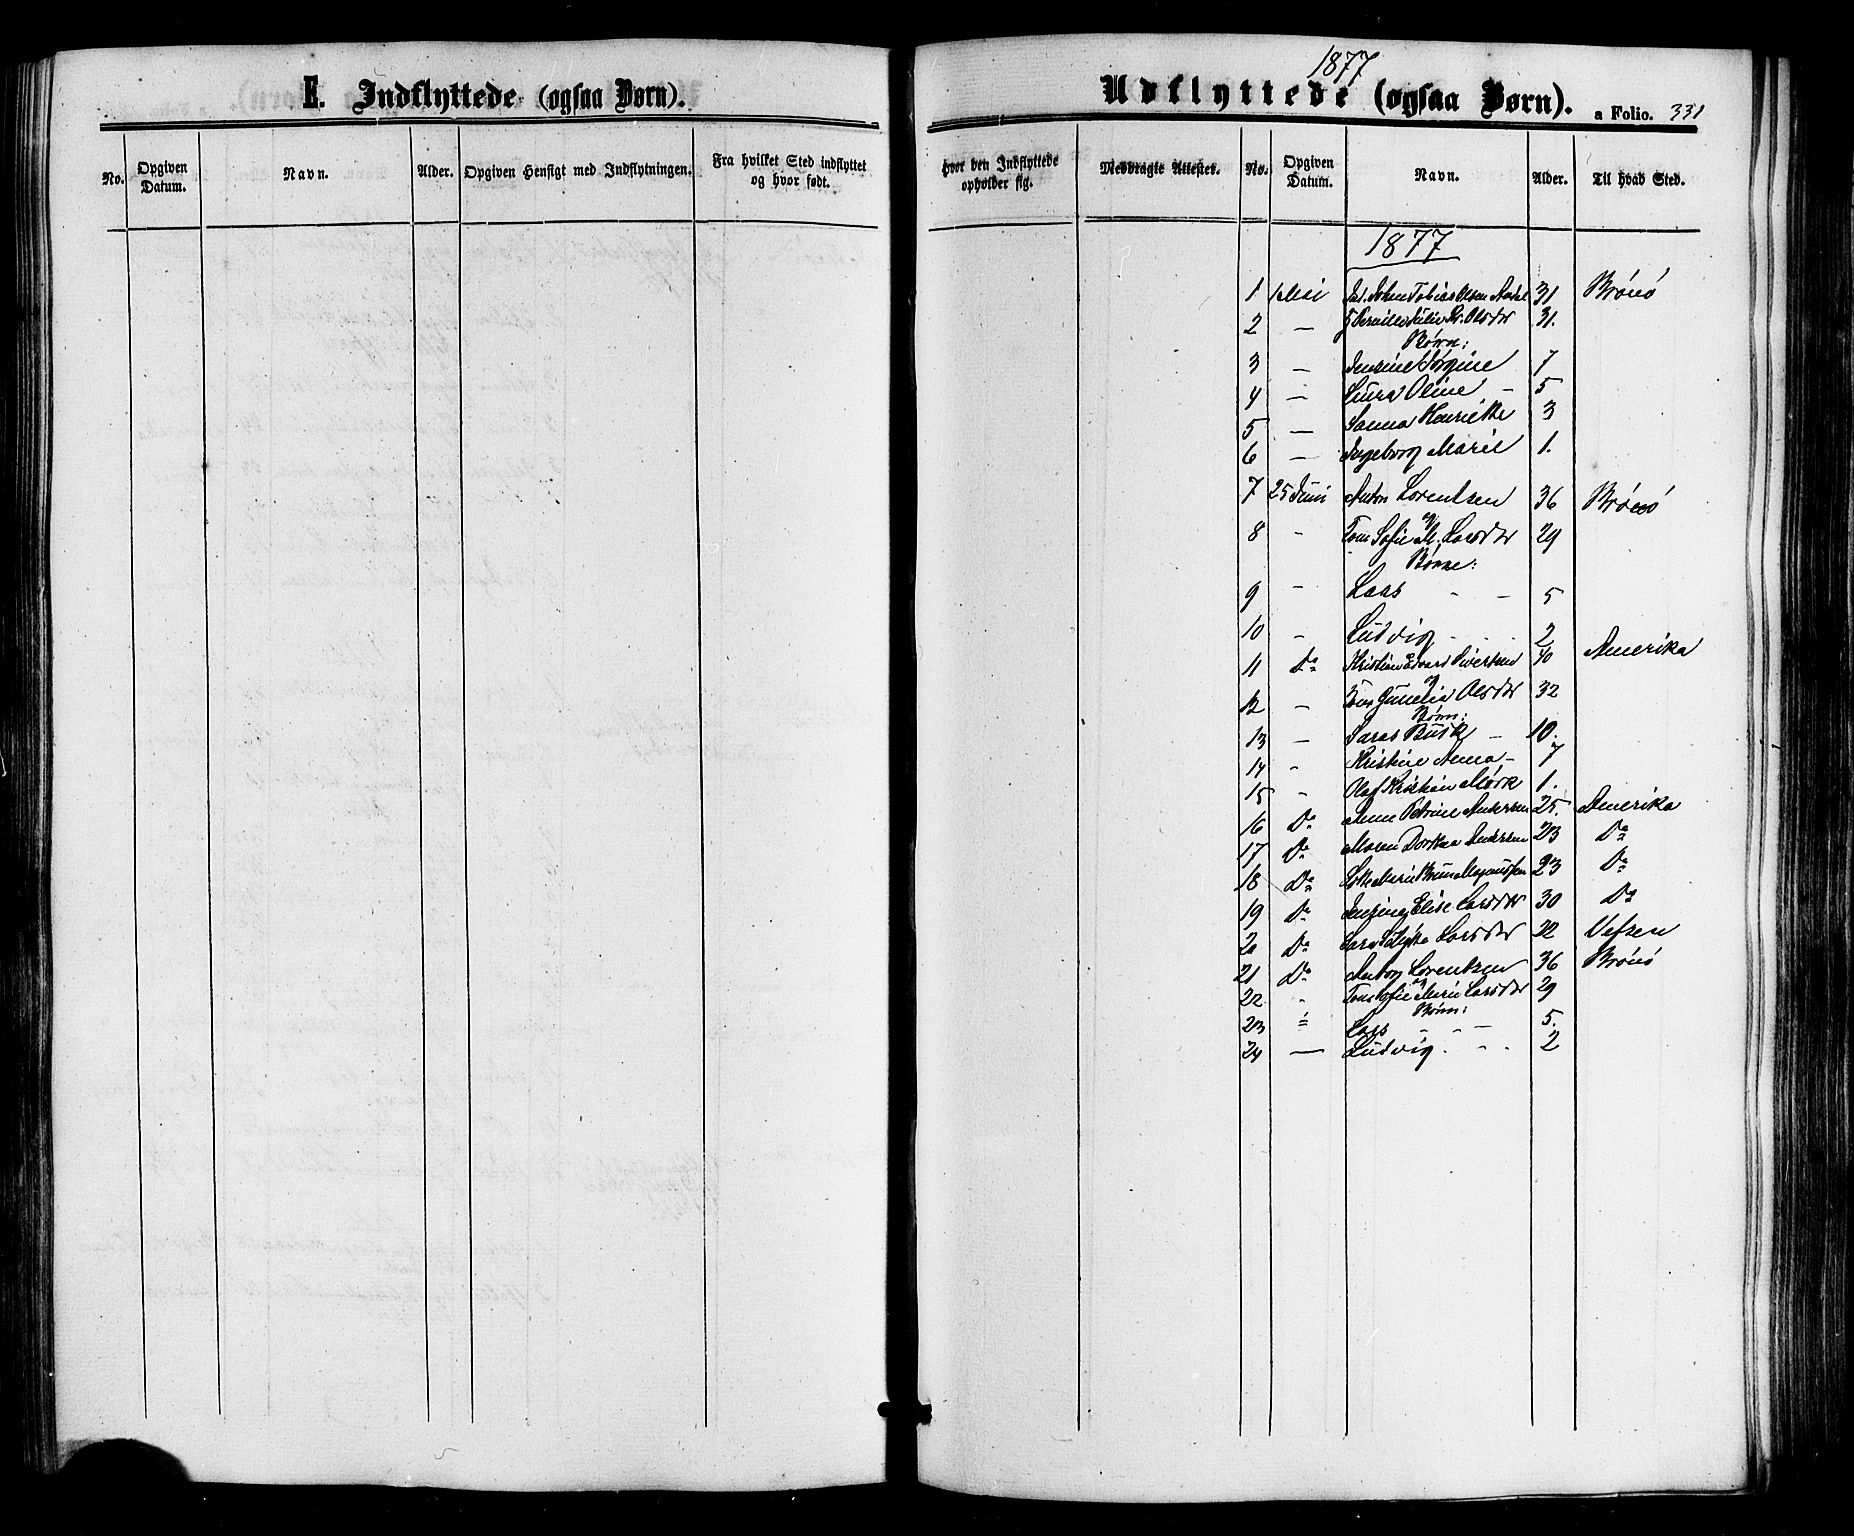 E. Indflyttede (ogsaa Børn).
No.
Opgiven Datum.
Navn.
Alder.
Opgiven Hensigt med Indflytningen.
Fra hvilket Sted indflyttet og hvor født.
1877
Udflyttede (ogsaa Børn).
a Folio. 331
hvor den Indflyttede opholder sig.
Medbragte Attester.
No.
Opgiven Datum.
Navn.
Alder.
Til hvad Sted.
1877
1 Mai Johan Tobias Olsen 31 Brönö
2 — Pernille Julie Olsdtr 31.
Børn:
3 — Jensine 7
4 — Laura Oline — 5
5 — Sanna Henrikke 3
6 — Ingeborg Marie 1.
7 25 Juni Anton Lorentsen 36 Brönö
og
8 - Sofie M. Larsdtr 29
Børn:
9 - Lars - - 5
10 - Ludvig - - - 2
11 Do Kristian Edvard Sivertsen 40 Amerika
og
12 — Olsdtr 32
Børn:
13 — Busk — 10.
14 - Kristine Anna — 7
15 - Olaf Kristian Mörk 1.
16 Do Anne Petrine Andersen 25. Amerika
17 Do Maren Dorthea Andersen 23 Do
18 Do Marie Magnussen 23 Do
19 Do Elise Larsdtr 30 Do
20 Do Larsdtr 22 Vefsen
21 Do Anton Lorentsen 36 Brönö
og
22 - Sofie Marie Larsdtr 29
Børn:
23 = Lars - - — 5.
24 — Ludvig. - - 2